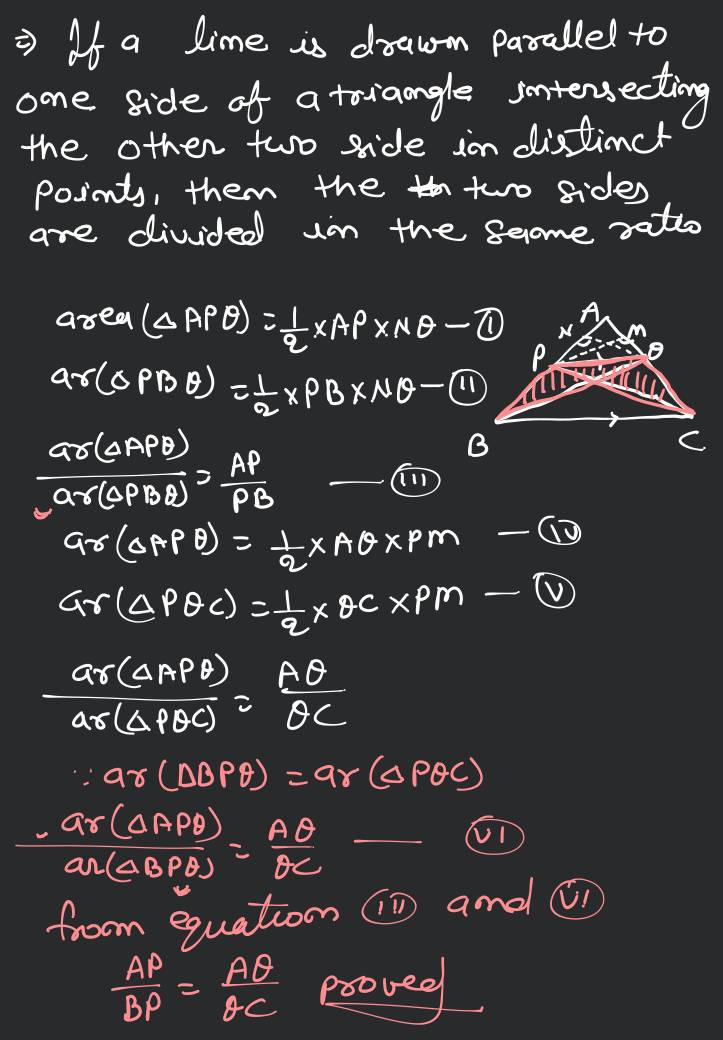 ⇒ If a line is drawn parallel to
one side of a triangle intersecting
the other two side in distinct
points, then the two sides
are divided in the same ratio
area (△APQ) = 1/2 × AP × NQ — (I)
ar(△PBQ) = 1/2 × PB × NQ — (II)
A
N M
P Q
B C
ar(△APQ)/ar(△PBQ) = AP/PB — (III)
ar(△APQ) = 1/2 × AQ × PM — (IV)
ar(△PQC) = 1/2 × QC × PM — (V)
ar(△APQ)/ar(△PQC) = AQ/QC
∵ ar(△BPQ) = ar(△PQC)
ar(△APQ)/ar(△BPQ) = AQ/QC — (VI)
from equation (III) and (VI)
AP/BP = AQ/QC proved